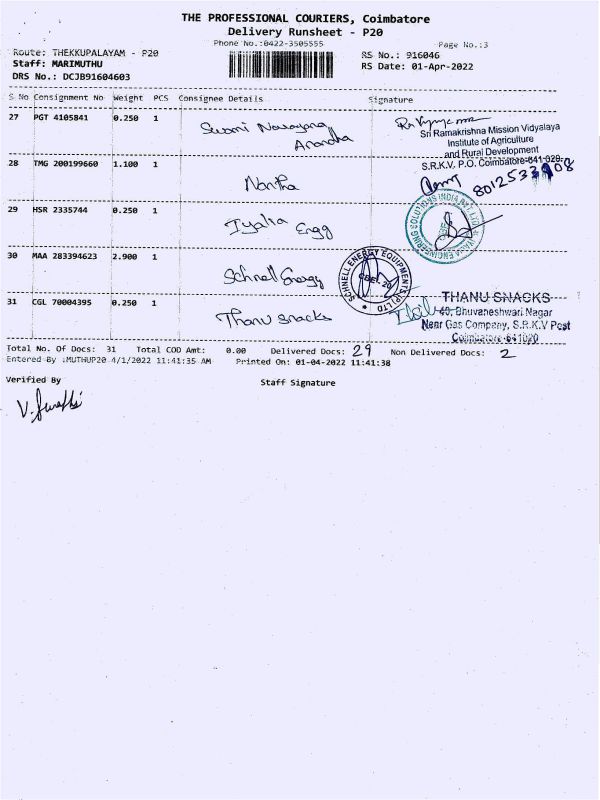 THE PROFESSIONAL COURIERS, Coimbatore
Delivery Runsheet - P20
Phone No.:0422-3505555
Page No.:3
Route: THEKKUPALAYAM - P20
RS No.: 916046
Staff: MARIMUTHU
RS Date: 01-Apr-2022
DRS No.: DCJB91604603
S No Consignment No Weight PCS Consignee Details Signature
27 PGT 4105841 0.250 1 Swami Narayana
Ananda
Sri Ramakrishna Mission Vidyalaya
Institute of Agriculture
and Rural Development
S.R.K.V. P.O. Coimbatore-641 020.
28 TMG 200199660 1.100 1 Nantha
8012533908
29 HSR 2335744 0.250 1 Iyalia Engg
IYALIA ENGINEERING SOLUTIONS INDIA PVT LTD
30 MAA 283394623 2.900 1 Schnell Energy
SCHNELL ENERGY EQUIPMENTS (P) LTD
CBE - 20
31 CGL 70004395 0.250 1 Thanu snacks
THANU SNACKS
40, Bhuvaneshwari Nagar
Near Gas Company, S.R.K.V Post
Coimbatore-641020
Total No. Of Docs: 31 Total COD Amt: 0.00 Delivered Docs: 29 Non Delivered Docs: 2
Entered By :MUTHUP20 4/1/2022 11:41:35 AM Printed On: 01-04-2022 11:41:38
Verified By Staff Signature